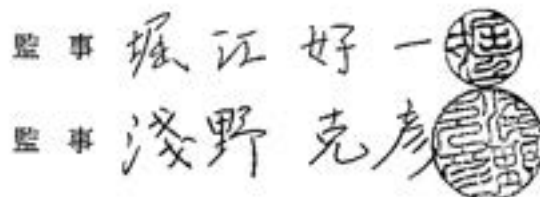 監事 堀江好一
監事 淺野克彦